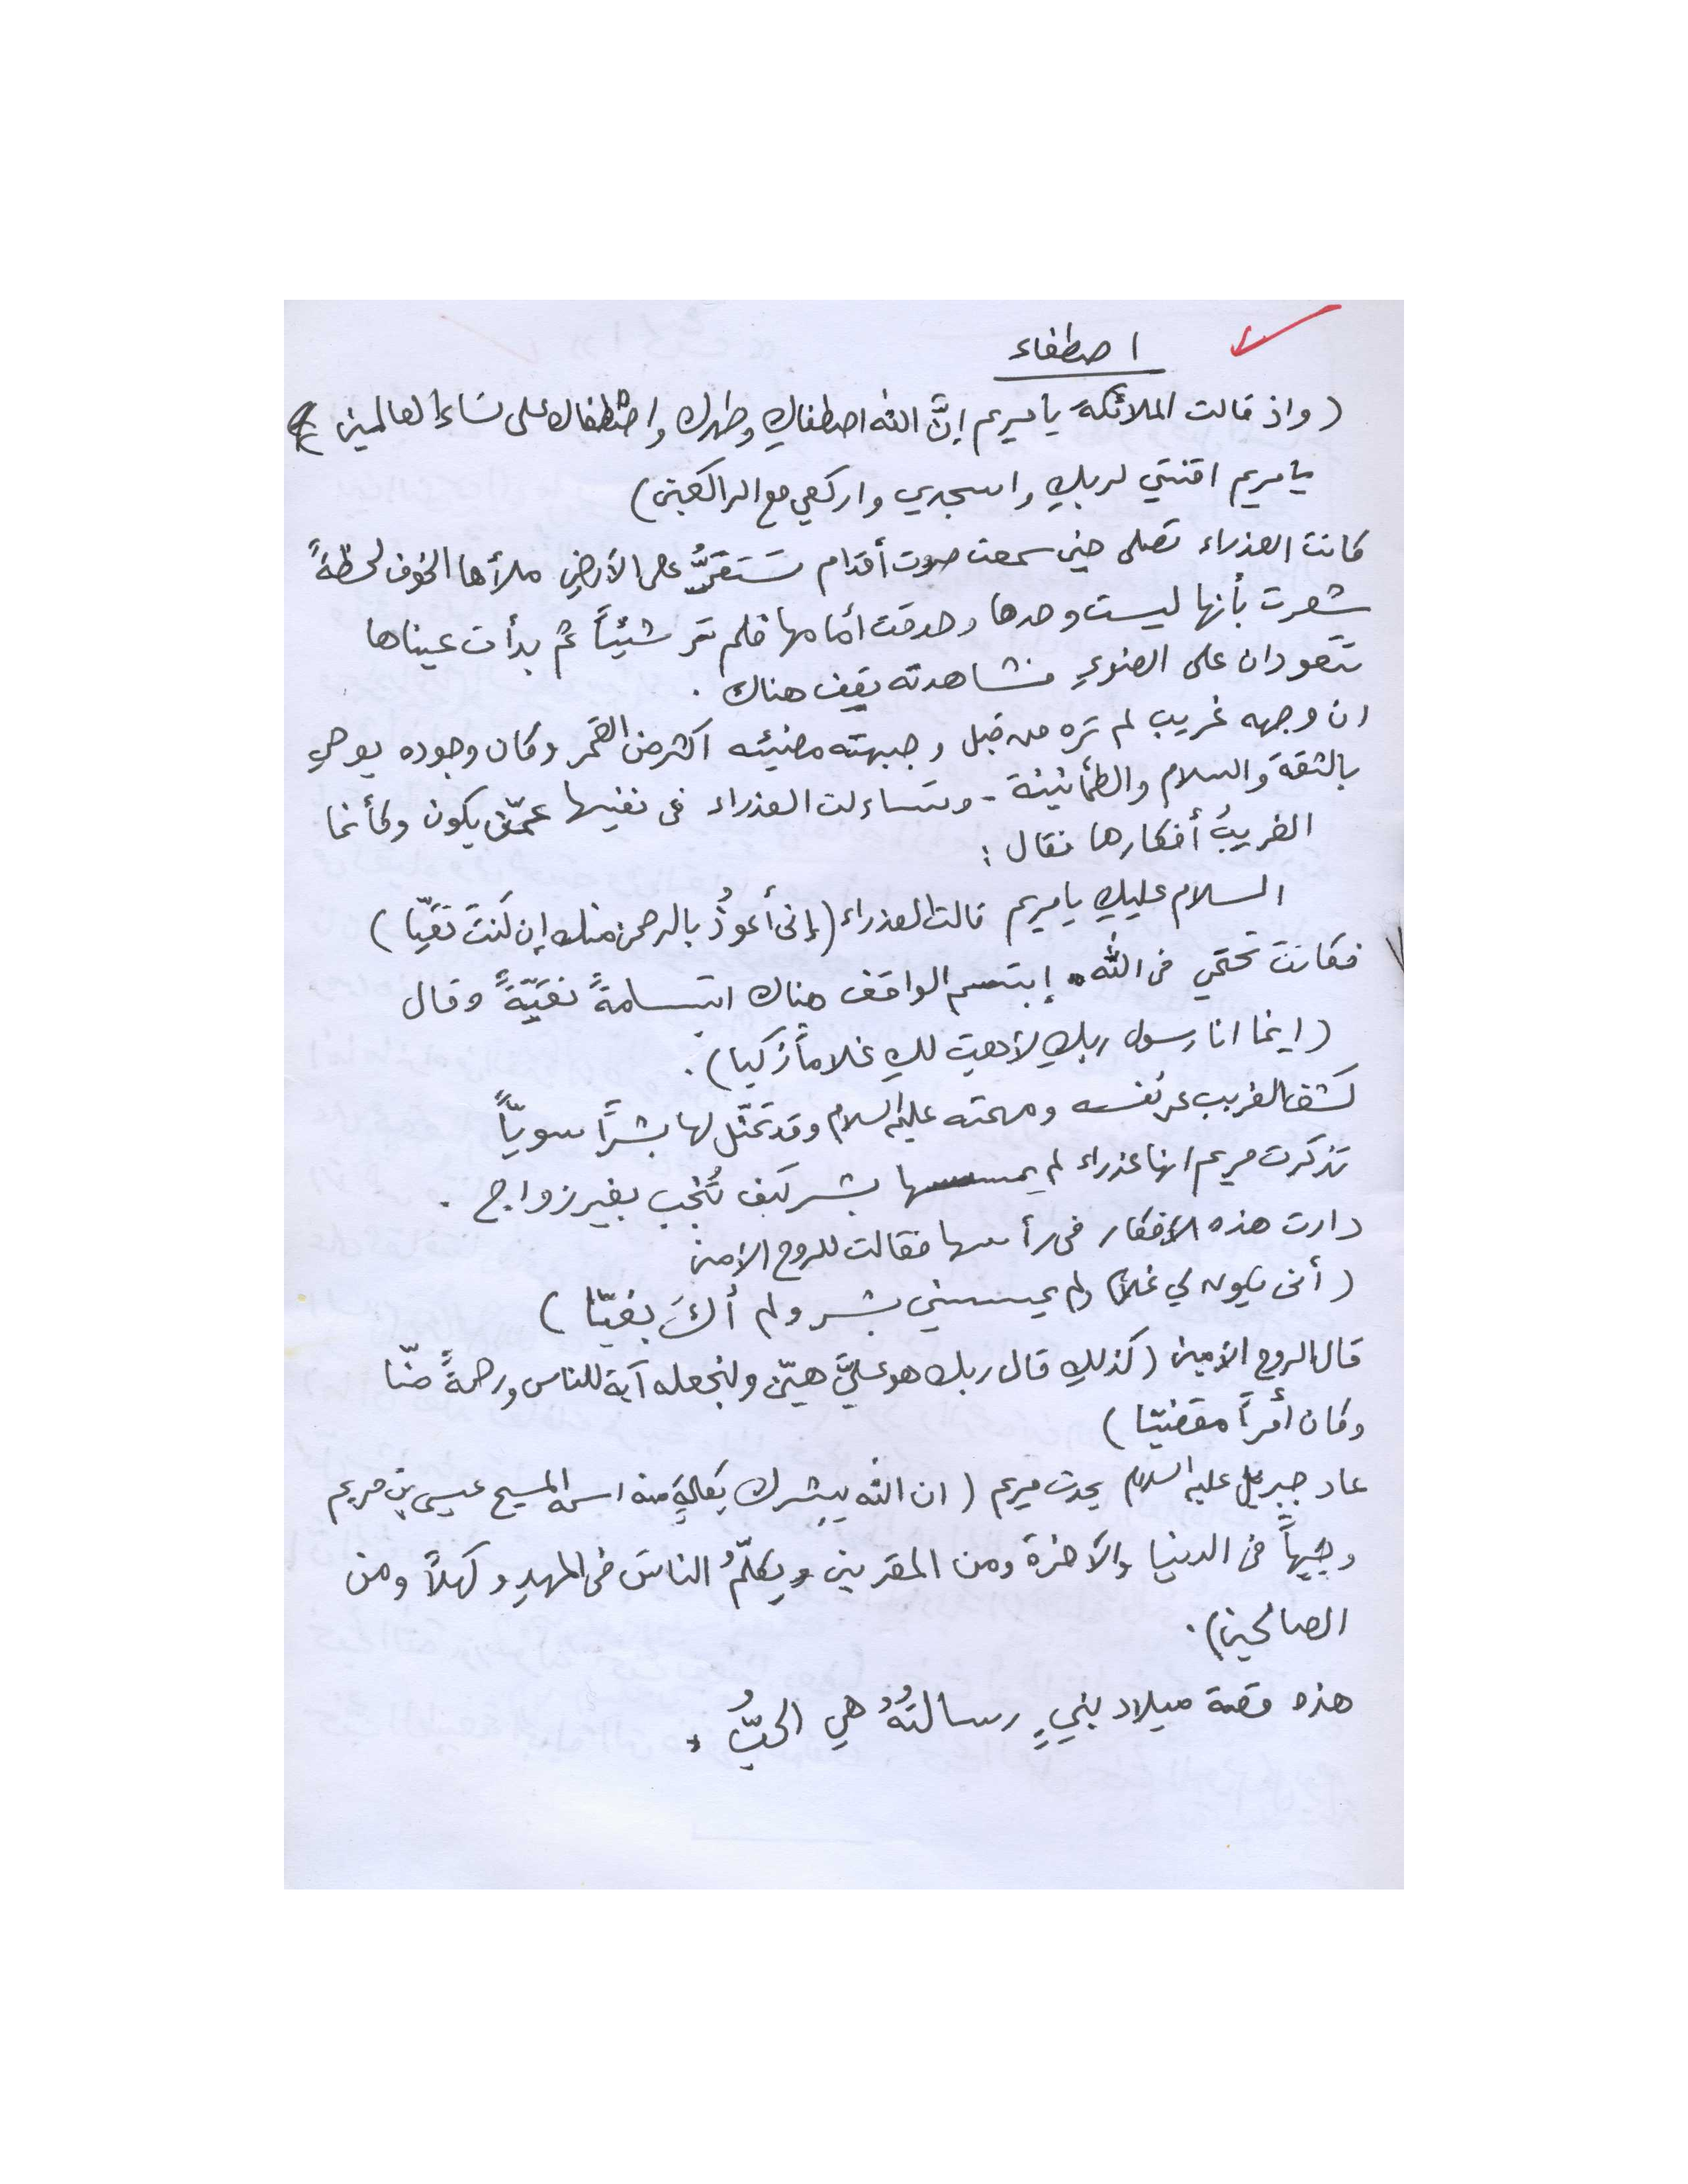 اصطفاء
(واذ قالت الملائكة يا مريم إنَّ الله اصطفاكِ وطهرك واصطفاك على نساء العالمين)
يا مريم اقنتي لربكِ واسجدي واركعي مع الراكعين)
كانت العذراء تصلى حين سمعت صوت أقدام تستقرُّ على الأرضِ ملأها الخوف لحظةً
شعرت بأنها ليست وحدها وحدقت أمامها فلم تر شيئاً ثم بدأت عيناها
تتعودان على الضوءِ فشاهدته يقف هناك .
ان وجهه غريب لم تره من قبل وجبهته مضيئه اكثر من القمر وكان وجوده يوحي
بالثقة والسلام والطمأنينة - وتساءلت العذراء فى نفسها عمّن يكون وكأنما
الغريبُ أفكارها فقال :
السلام عليكِ يا مريم قالت العذراء (إنى أعوذُ بالرحمن منك إن كنتَ تقيّا)
فكانت تحتمي فى الله. إبتسم الواقف هناك ابتسامةً نقيّةً وقال
(انما انا رسول ربكِ لأهبَ لكِ غلاماً زكيا).
كشف الغريب عن نفسه ومهمته عليه السلام وقد تمثّل لها بشراً سويّاً
تذكرت مريم انها عذراء لم يمسسها بشر كيف تُنجب بغير زواج .
دارت هذه الافكار فى رأسها فقالت للروح الامين
(أنى يكون لي غلامٌ ولم يمسسني بشر ولم أكَ بغيّا)
قال الروح الأمين (كذلكِ قال ربك هو عليَّ هيّن ولنجعله آية للناس ورحمةً منّا
وكان أمراً مقضيّا)
عاد جبريل عليه السلام يحدث مريم (ان الله يبشرك بكلمةٍ منه اسمه المسيح عيسى بن مريم
وجيهاً فى الدنيا والآخرة ومن المقربين ويكلّمُ الناسَ فى المهدِ وكهلاً ومن
الصالحين).
هذه قصة ميلاد نبيٍ رسالتُهُ هي الحبُّ .